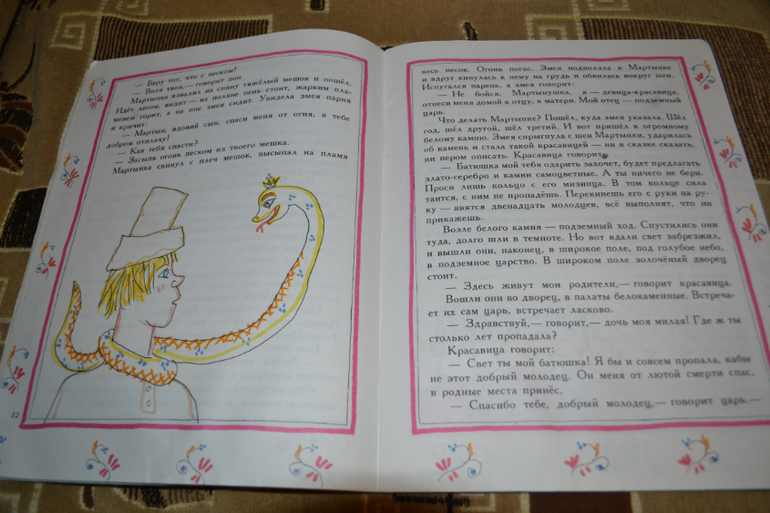 — Беру тот, что с песком!
— Воля твоя,— говорит поп.
Мартынка взвалил на спину тяжёлый мешок и пошёл.
Идёт лесом, видит — на поляне пень стоит, жарким пла-
менем горит, а на пне змея сидит. Увидела змея парня
и кричит:
— Мартын, вдовий сын, спаси меня от огня, я тебе
добром отплачу!
— Как тебя спасти?
— Засыпь огонь песком из твоего мешка.
Мартынка скинул с плеч мешок, высыпал на пламя
12
весь песок. Огонь погас. Змея подползла к Мартынке
и вдруг кинулась к нему на грудь и обвилась вокруг шеи.
Испугался парень, а змея говорит:
— Не бойся, Мартынушка, я — девица-красавица,
отнеси меня домой к отцу, к матери. Мой отец — подземный
царь.
Что делать Мартынке? Пошёл, куда змея указала. Шёл
год, шёл другой, шёл третий. И вот пришёл к огромному
белому камню. Змея спрыгнула с шеи Мартынки, ударилась
об камень и стала такой красавицей — ни в сказке сказать,
ни пером описать. Красавица говорит:
— Батюшка мой тебя одарить захочет, будет предлагать
злато-серебро и камни самоцветные. А ты ничего не бери.
Проси лишь кольцо с его мизинца. В том кольце сила
таится, с ним не пропадёшь. Перекинешь его с руки на ру-
ку — явятся двенадцать молодцев, всё выполнят, что ни
прикажешь.
Возле белого камня — подземный ход. Спустились они
туда, долго шли в темноте. Но вот вдали свет забрезжил,
и вышли они, наконец, в широкое поле, под голубое небо,
в подземное царство. В широком поле золочёный дворец
стоит.
— Здесь живут мои родители,— говорит красавица.
Вошли они во дворец, в палаты белокаменные. Встреча-
ет их сам царь, встречает ласково.
— Здравствуй,— говорит,— дочь моя милая! Где ж ты
столько лет пропадала?
Красавица говорит:
— Свет ты мой батюшка! Я бы и совсем пропала, кабы
не этот добрый молодец. Он меня от лютой смерти спас,
в родные места принёс.
— Спасибо тебе, добрый молодец,— говорит царь.—